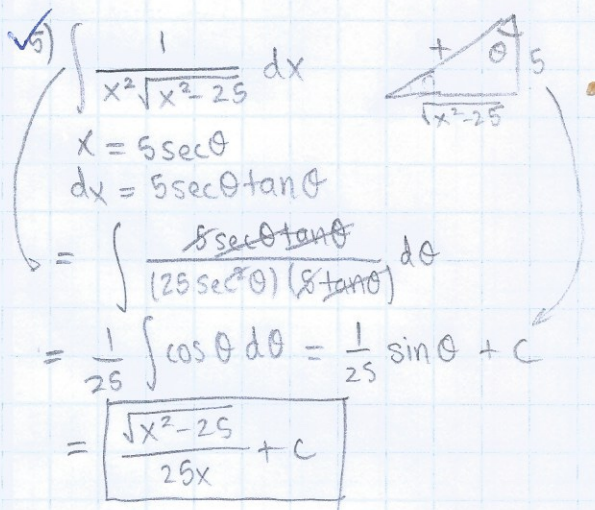 5) ∫ 1 / (x²√(x²-25)) dx
x = 5secθ
dx = 5secθtanθ
= ∫ 5secθtanθ / ((25sec²θ)(5tanθ)) dθ
= 1/25 ∫cosθ dθ = 1/25 sinθ + C
= √(x²-25) / 25x + C
θ
5
√(x²-25)